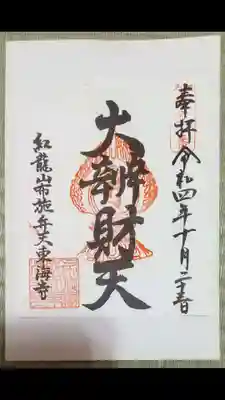 奉拝
令和四年十月二十春
大辨財天
紅龍山布施弁天東海寺